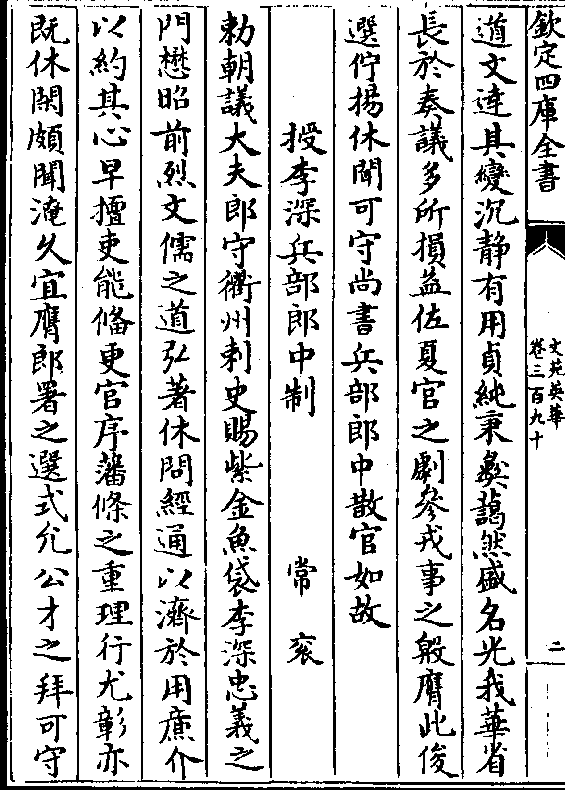 欽定四庫全書
文苑英華
卷三百九十
二
道文達其變沉静有用貞純秉彜藹然盛名光我華省
長於奏議多所損益佐夏官之劇參戎事之殷膺此俊
選佇揚休聞可守尚書兵部郎中散官如故
授李深兵部郎中制 常衮
勅朝議大夫郎守衢州刺史賜紫金魚袋李深忠義之
門懋昭前烈文儒之道弘著休問經通以濟於用㢘介
以約其心早擅吏能備更官序藩條之重理行尤彰亦
既休閑頗聞淹久宜膺郎署之選式允公才之拜可守